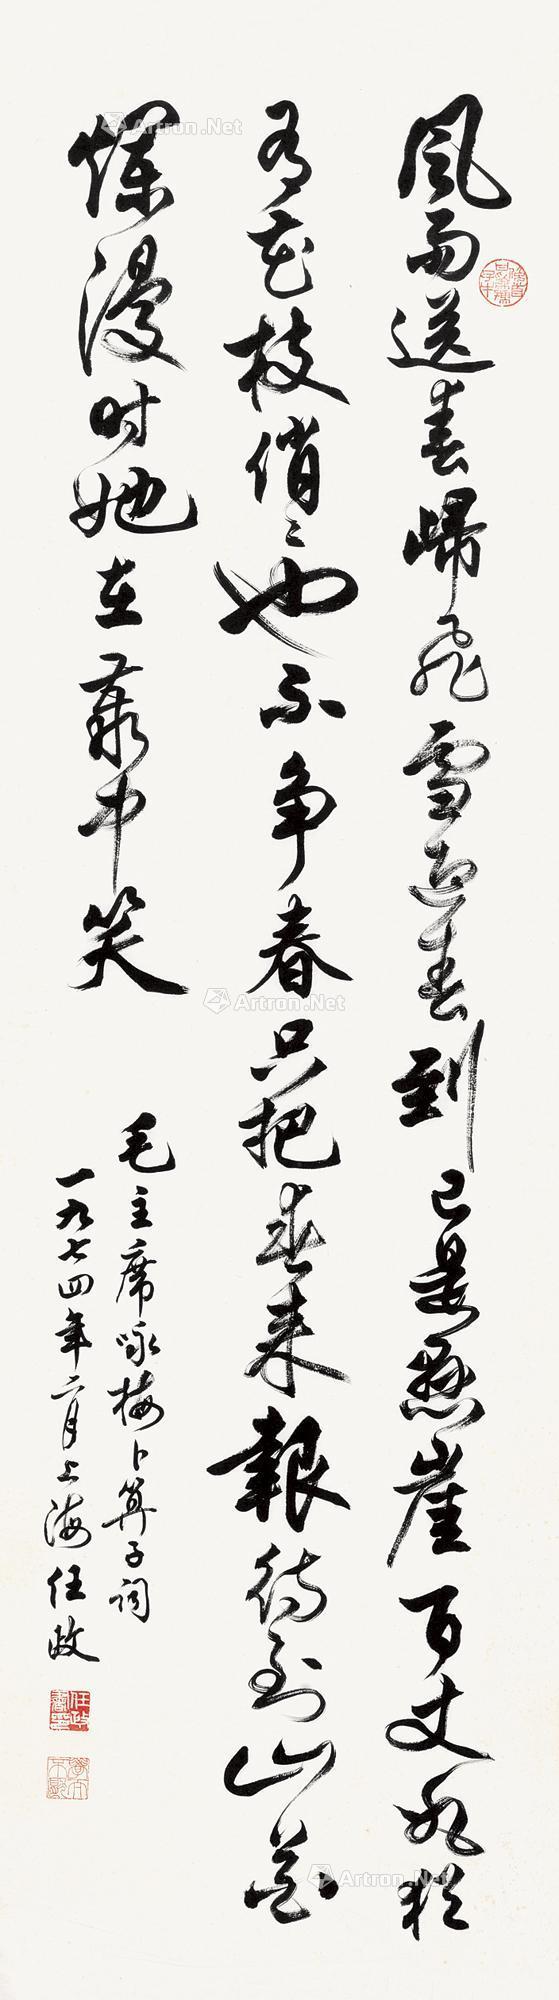 風雨送春歸飛雪迎春到已是懸崖百丈冰猶
有花枝俏俏也不争春只把春来報待到山花
爛漫時她在叢中笑
毛主席咏梅卜算子詞
一九七四年六月上海任政
Artron.Net
Artron.Net
Artron.Net